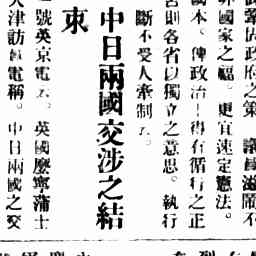 政府之策 議員滋鬧不
非國家之福。更宜速定憲法。
國本。俾政治上得在循行之正
否則各省以獨立之意思。執行
斷不受人牽制云。
中日兩國交涉之結
束
號英京電云。英國麼寧蒲士
天津訪員電稱。中日兩國之交